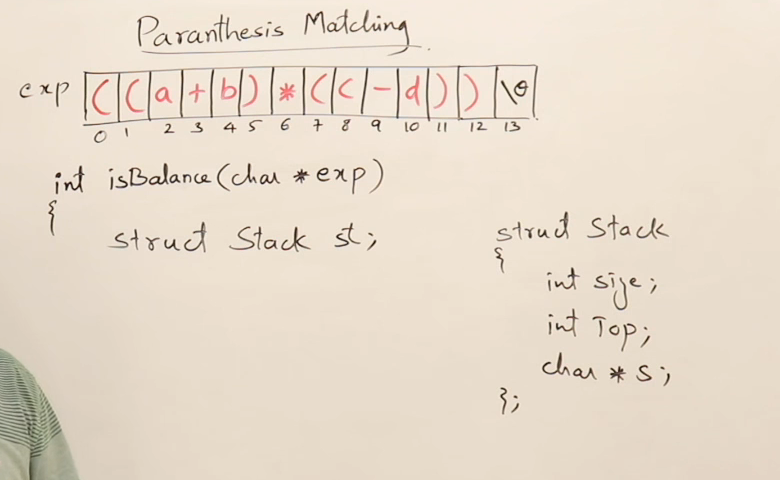 Paranthesis Matching
exp ( ( a + b ) * ( c - d ) ) \0
0 1 2 3 4 5 6 7 8 9 10 11 12 13
int isBalance(char *exp)
{
struct Stack st;
struct Stack
{
int size;
int Top;
char * s;
};